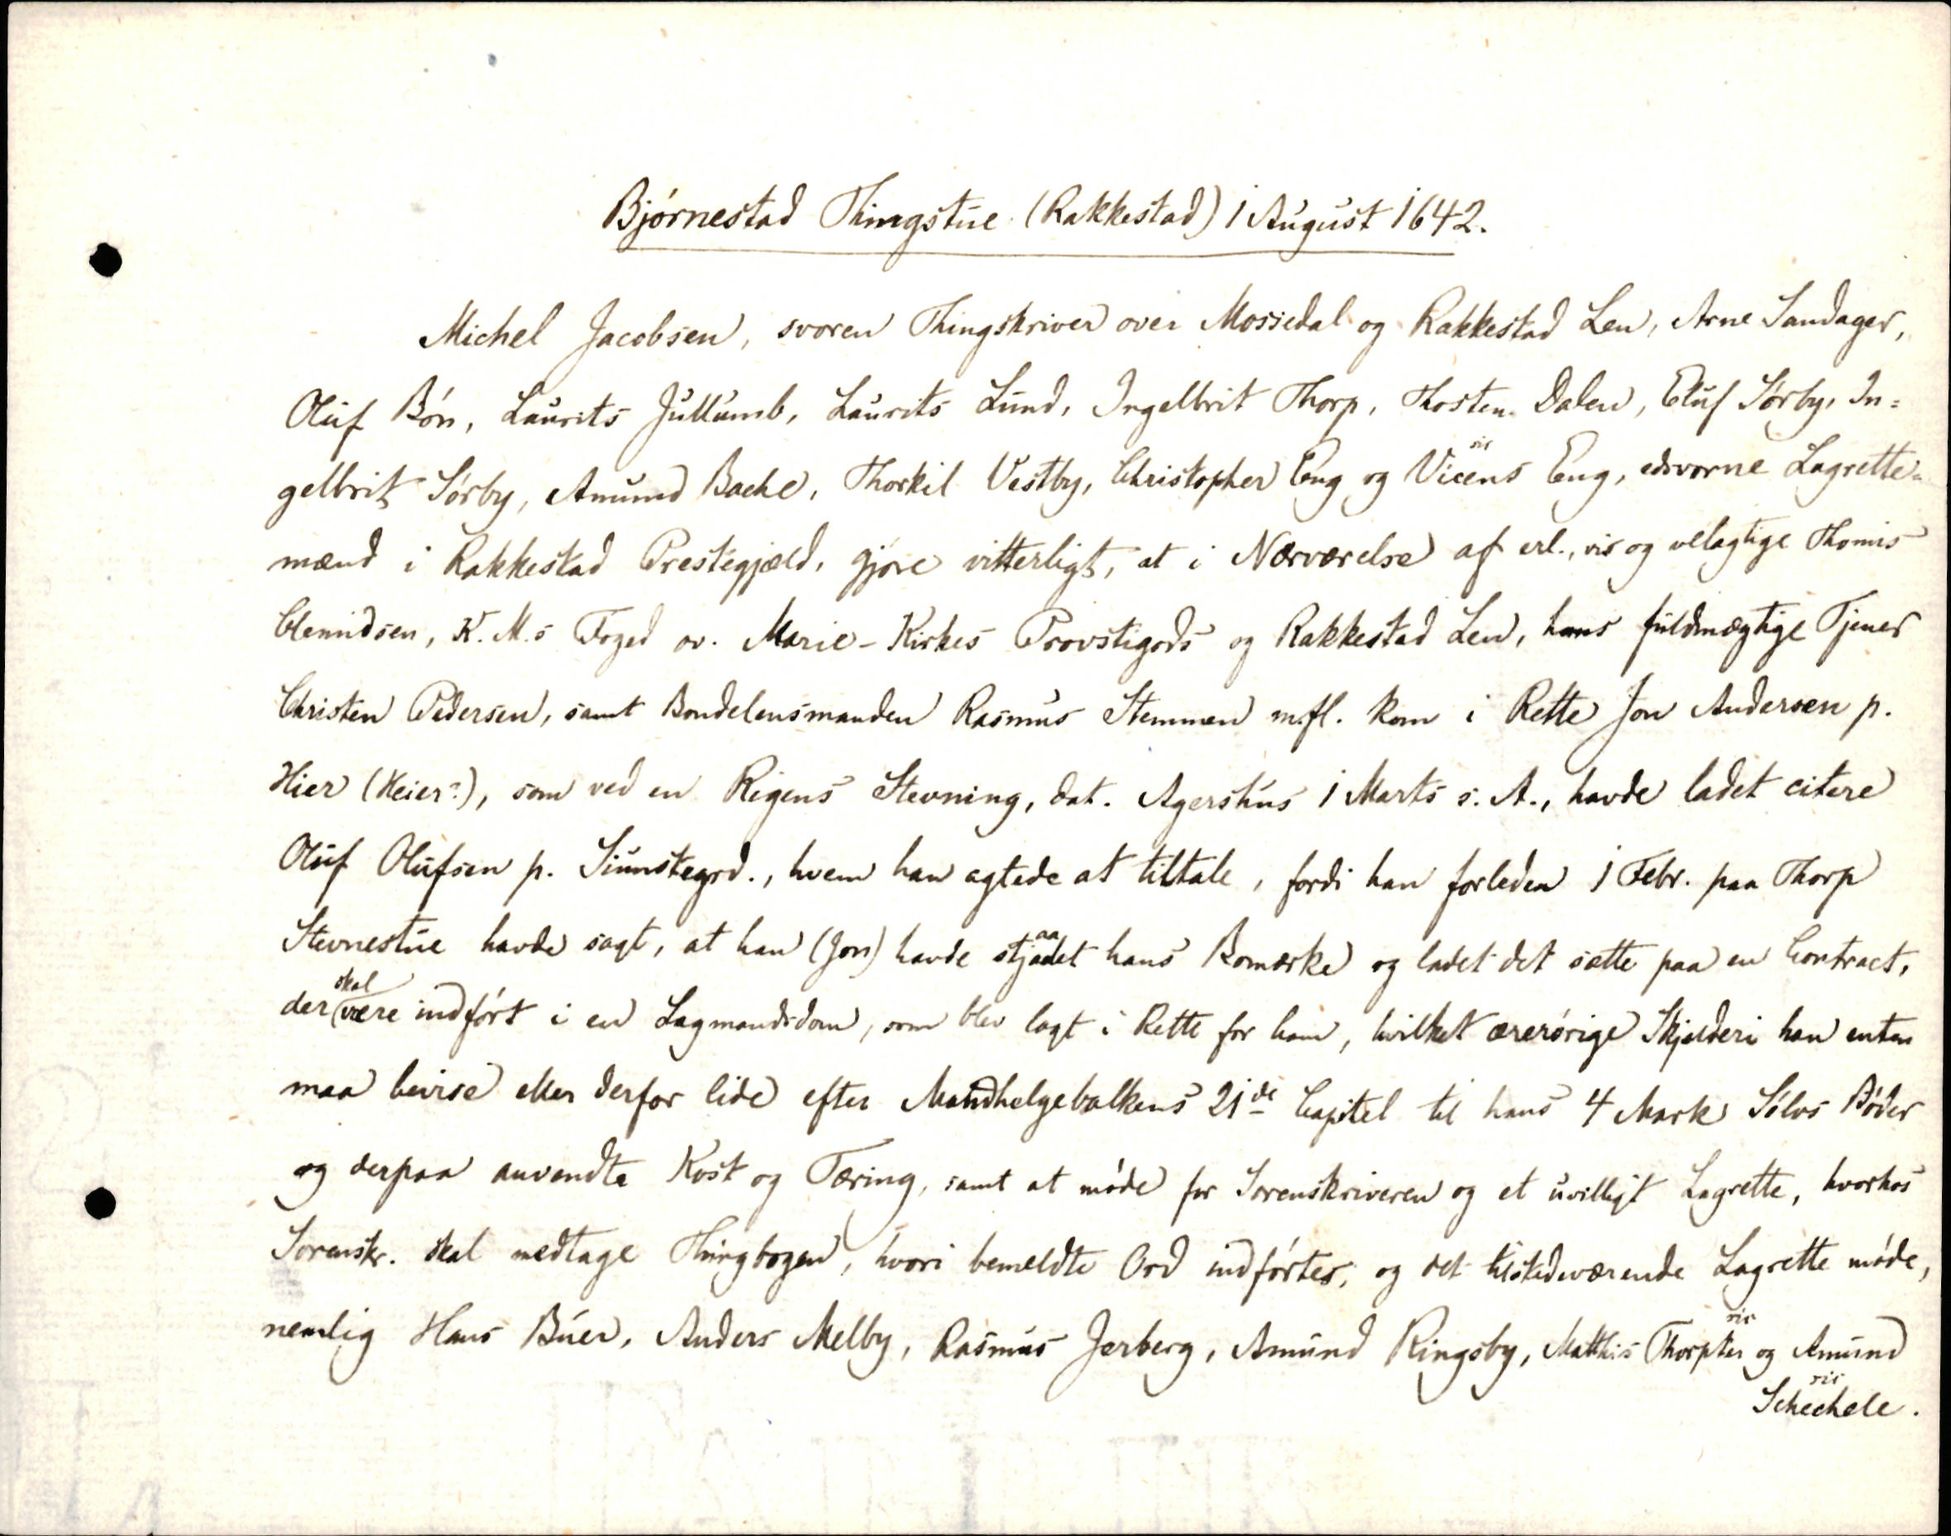 Bjørnestad Thingstue (Rakkestad) 1 August 1642.
Michel Jacobsen, svoren Thingskriver over Mossedal og Rakkestad Len, Arne Sandager,
Oluf Bøn, Laurits Jullumb, Laurits Lund, Ingelbrit Thorp, Thosten Dalen, Eluf Sørby, In-
gelbrit Sørby, Amund Bache, Thorkil Vestby, Christopher Eng og Vicens (sic) Eng, edsvorne Lagrette-
mænd i Rakkestad Prestegjæld, gjøre vitterligt, at i Nærværelse af erl., vis og velagtige Thomis
Clemidsen, K. M.s Foged ov. Marie-Kirkes Provstigods og Rakkestad Len, hans fuldmægtige Tjener
Christen Pedersen, samt Bondelensmanden Rasmus Stemmen m.fl. kom i Rette Jon Andersen p.
Hier (Heier?), som ved en Rigens Stevning, dat. Agershus 1 Marts s. A., havde ladet citere
Oluf Olufsen p. Siunstegrd., hvem han agtede at tiltale, fordi han forleden 1 Febr. paa Thorp
Stevnestue havde sagt, at han (Jon) havde stjaalet hans Bomærke og ladet det sætte paa en Contract,
der skal være indført i en Lagmandsdom, som blev lagt i Rette for ham, hvilket ærerørige Skjelderi han enten
maa bevise eller derfor lide efter Mandhelgebalkens 21de Capitel til hans 4 Mark Sølvs Bøder
og derpaa anvendte Kost og Tæring, samt at møde for Sorenskriveren og et uvilligt Lagrette, hvorhos
Sorenskr. skal medtage Thingbogen, hvori bemeldte Ord indførtes, og det tilstedeværende Lagrette møde,
nemlig Hans Buer, Anders Melby, Rasmus Jerberg, Amund Ringsby, Matthis Thorpter (sic) og Amund
Schechele (sic).